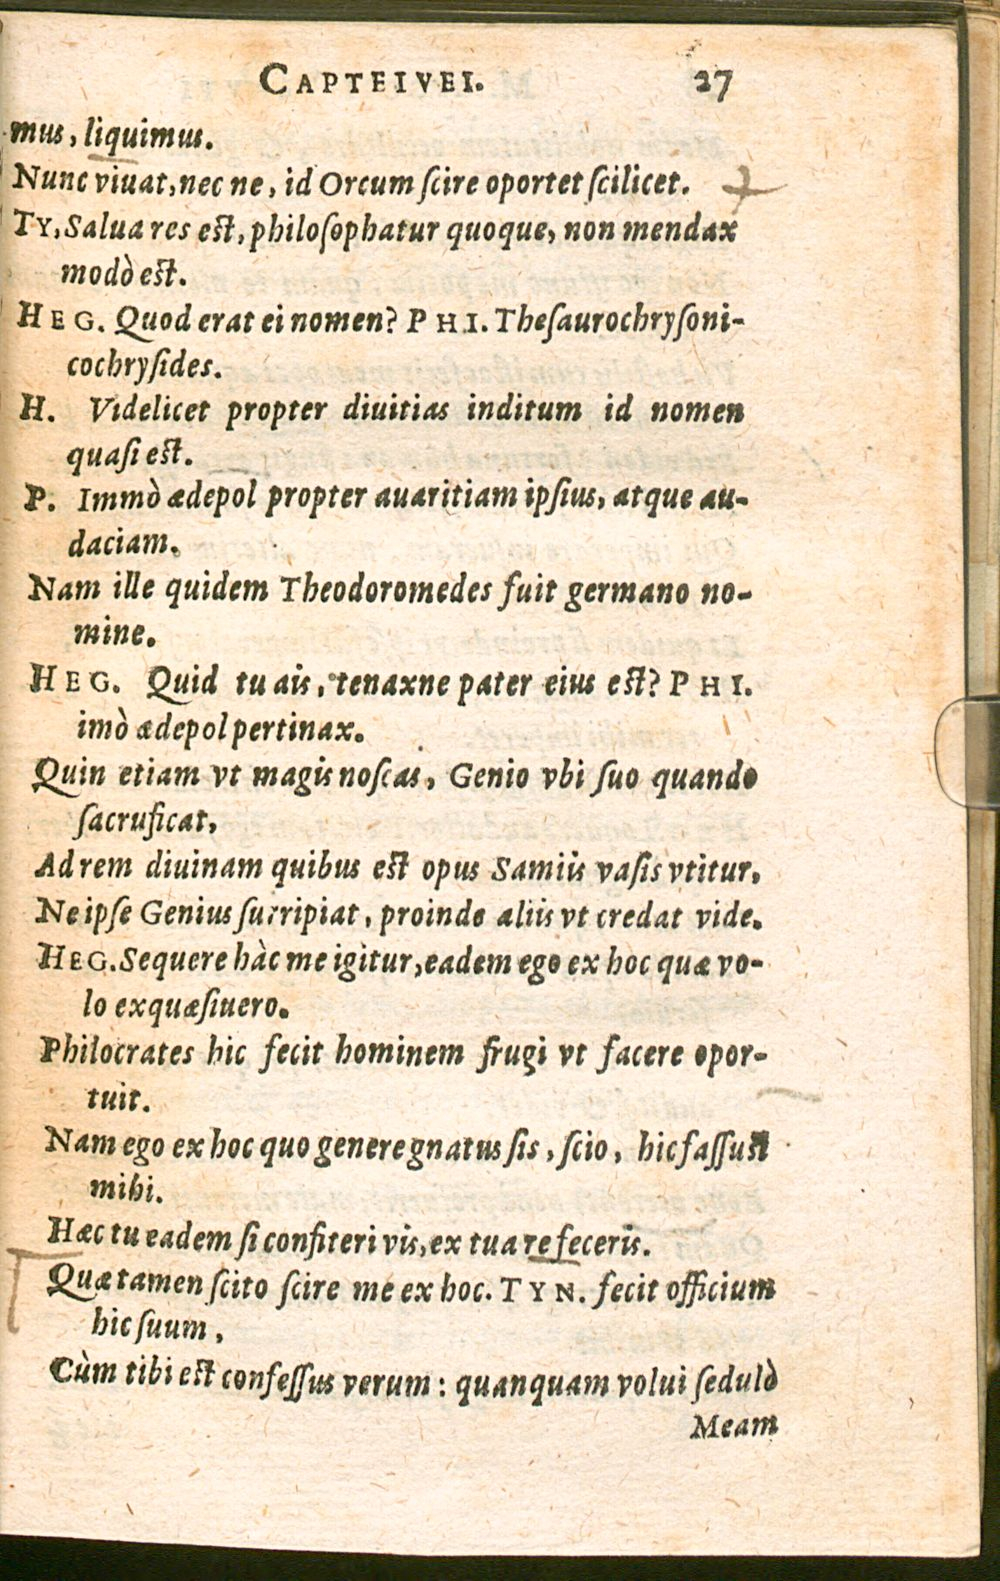 CAPTEIVEI. 27
mus, liquimus.
Nunc viuat, nec ne, id Orcum ſcire oportet ſcilicet.
TY. Salua res eſt, philoſophatur quoque, non mendax
modò eſt.
HEG. Quod erat ei nomen? PHI. Theſaurochryſoni-
cochryſides.
H. Videlicet propter diuitias inditum id nomen
quaſi eſt.
P. Immò ædepol propter auaritiam ipſius, atque au-
daciam.
Nam ille quidem Theodoromedes fuit germano no-
mine.
HEG. Quid tu ais, tenaxne pater eius eſt? PHI.
imò ædepol pertinax.
Quin etiam vt magis noſcas, Genio vbi ſuo quando
ſacruficat,
Ad rem diuinam quibus eſt opus Samiis vaſis vtitur,
Ne ipſe Genius ſurripiat, proinde aliis vt credat vide.
HEG. Sequere hàc me igitur, eadem ego ex hoc quæ vo-
lo exquæſiuero.
Philocrates hic fecit hominem frugi vt facere opor-
tuit.
Nam ego ex hoc quo genere gnatus ſis, ſcio, hic faſſuſt
mihi.
Hæc tu eadem ſi confiteri vis, ex tua re feceris.
Quæ tamen ſcito ſcire me ex hoc. TYN. fecit officium
hic ſuum,
Cùm tibi eſt confeſſus verum: quanquam volui ſedulò
Meam